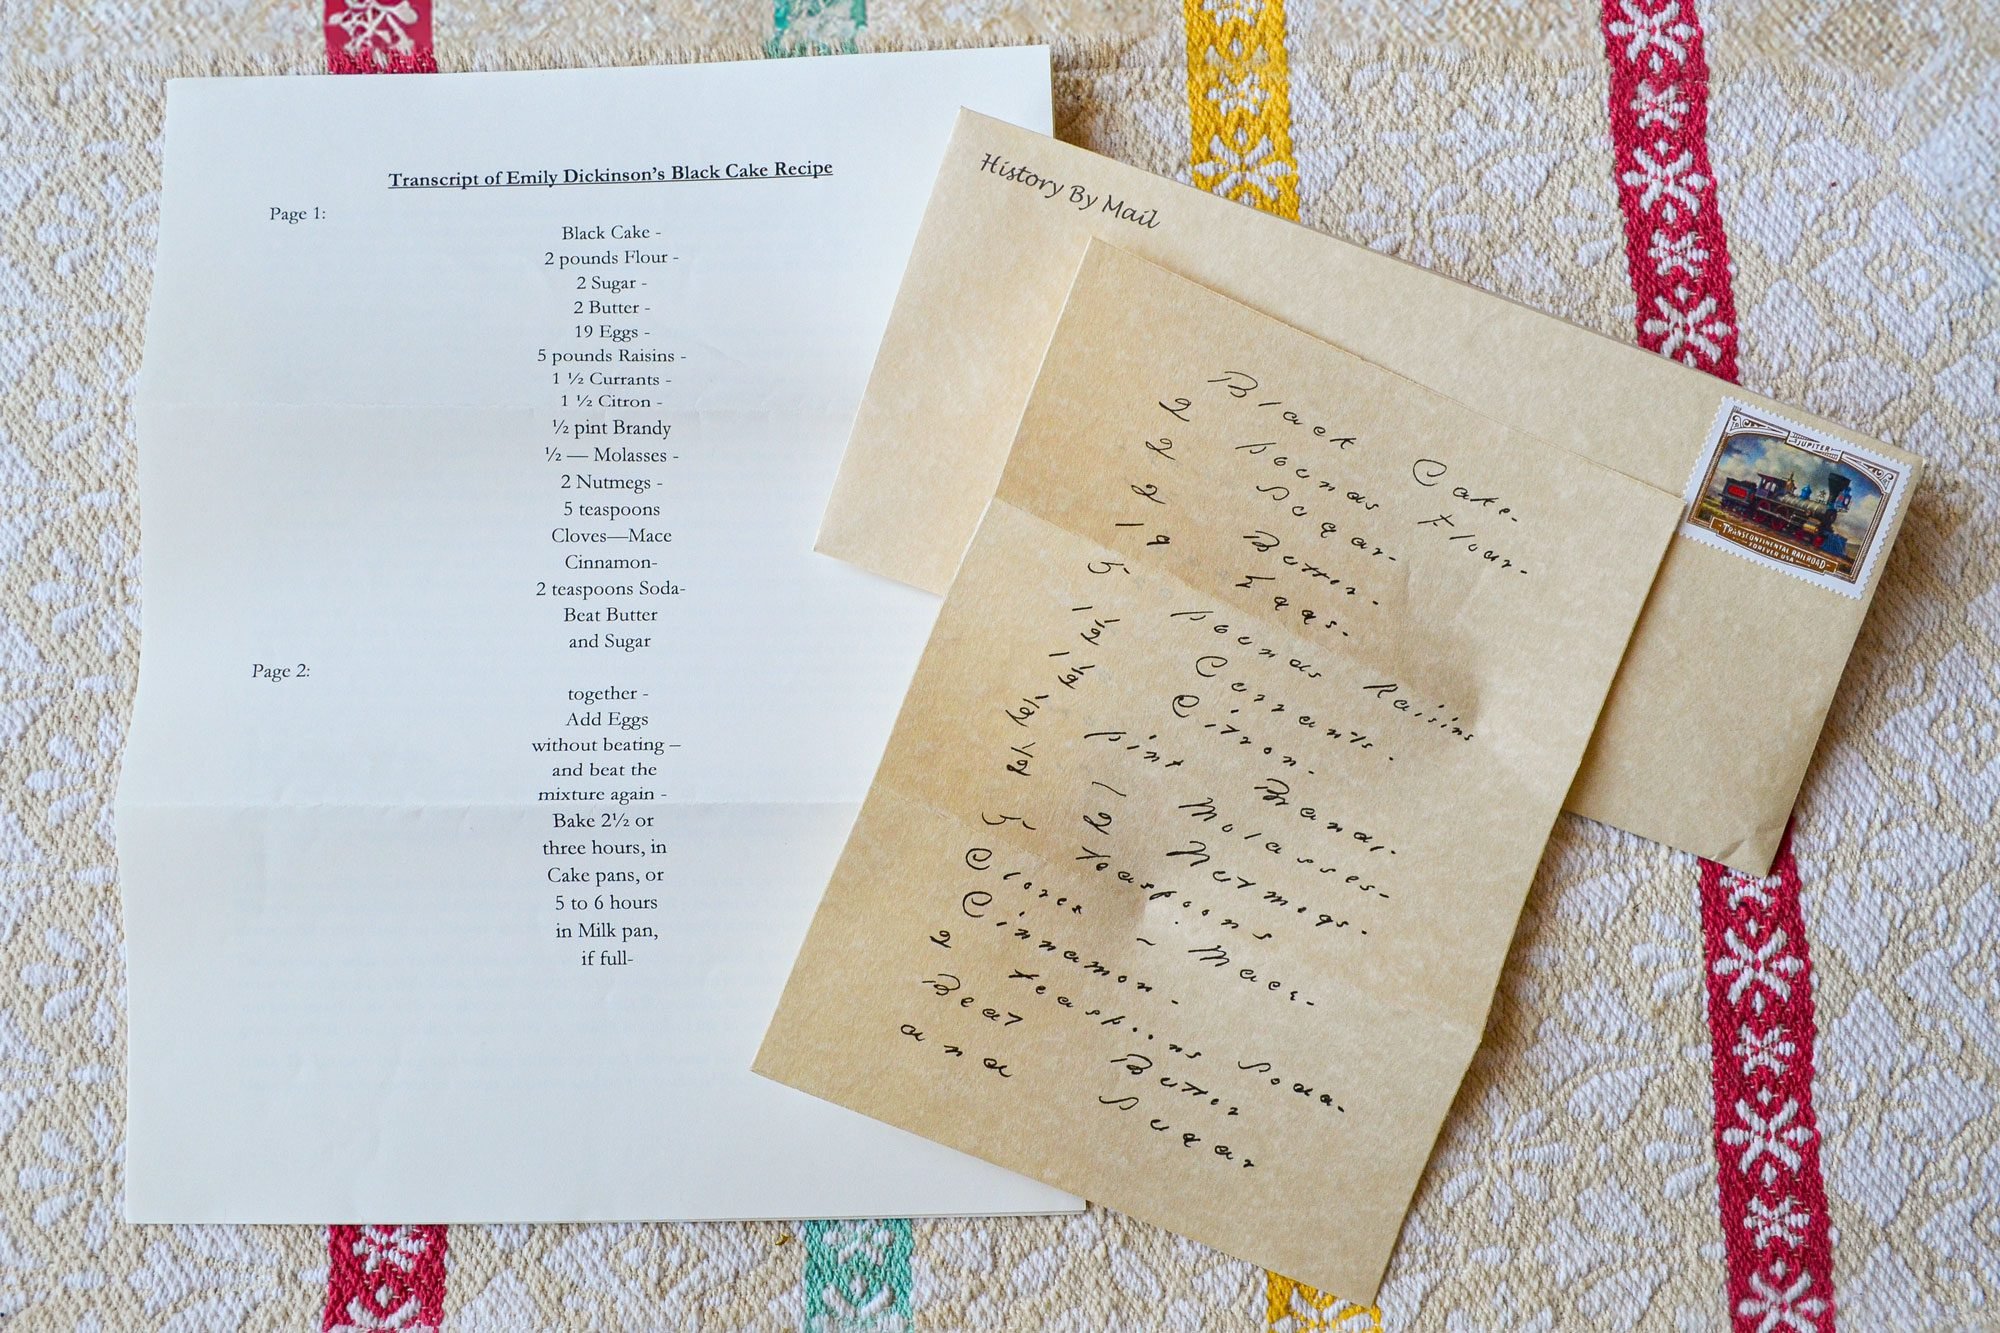 Transcript of Emily Dickinson's Black Cake Recipe
Page 1:
Black Cake -
2 pounds Flour -
2 Sugar -
2 Butter -
19 Eggs -
5 pounds Raisins -
1 ½ Currants -
1 ½ Citron -
½ pint Brandy
½ — Molasses -
2 Nutmegs -
5 teaspoons
Cloves—Mace
Cinnamon-
2 teaspoons Soda-
Beat Butter
and Sugar
Page 2:
together -
Add Eggs
without beating –
and beat the
mixture again -
Bake 2½ or
three hours, in
Cake pans, or
5 to 6 hours
in Milk pan,
if full-
History By Mail
JUPITER
TRANSCONTINENTAL RAILROAD
FOREVER USA
Black Cake-
2 pounds Flour-
2 Sugar-
2 Butter-
19 Eggs-
5 pounds Raisins
1 ½ Currants-
1 ½ Citron-
½ pint Brandy
½ - Molasses-
2 Nutmegs-
5 teaspoons
Cloves - Mace-
Cinnamon-
2 teaspoons Soda-
Beat Butter
and Sugar